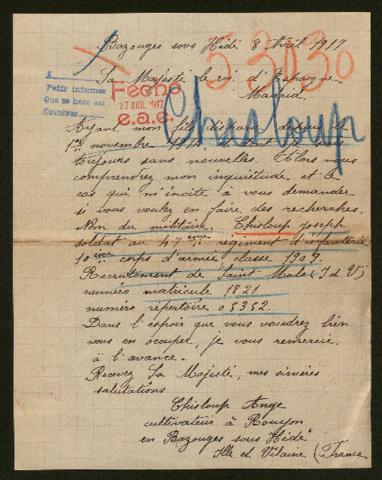 Bazouges sous Hédé 8 Avril 1917
53030
Sa Majesté le roi d'Espagne
Madrid
Pedir informes
Que se hace así
Fecha
27 ABR. 1917
e.a.e.
Chisloup
Ayant mon fils disparu
1er novembre 1914
toujours sans nouvelles. Alors vous
comprendrez mon inquiétude et le
cas qui m'incite à vous demander
si vous voulez en faire des recherches.
Nom du militaire, Chisloup Joseph
soldat au 47ème régiment d'infanterie
10ème corps d'armée, classe 1909.
Recrutement de Saint-Malo (I et V)
numéro matricule 1821
numéro répertoire 05352.
Dans l'espoir que vous voudrez bien
vous en occuper, je vous remercie
à l'avance.
Recevez Sa Majesté, mes sincères
salutations
Chisloup Ange
cultivateur à Rouyon
en Bazouges sous Hédé
Ille et Vilaine (France